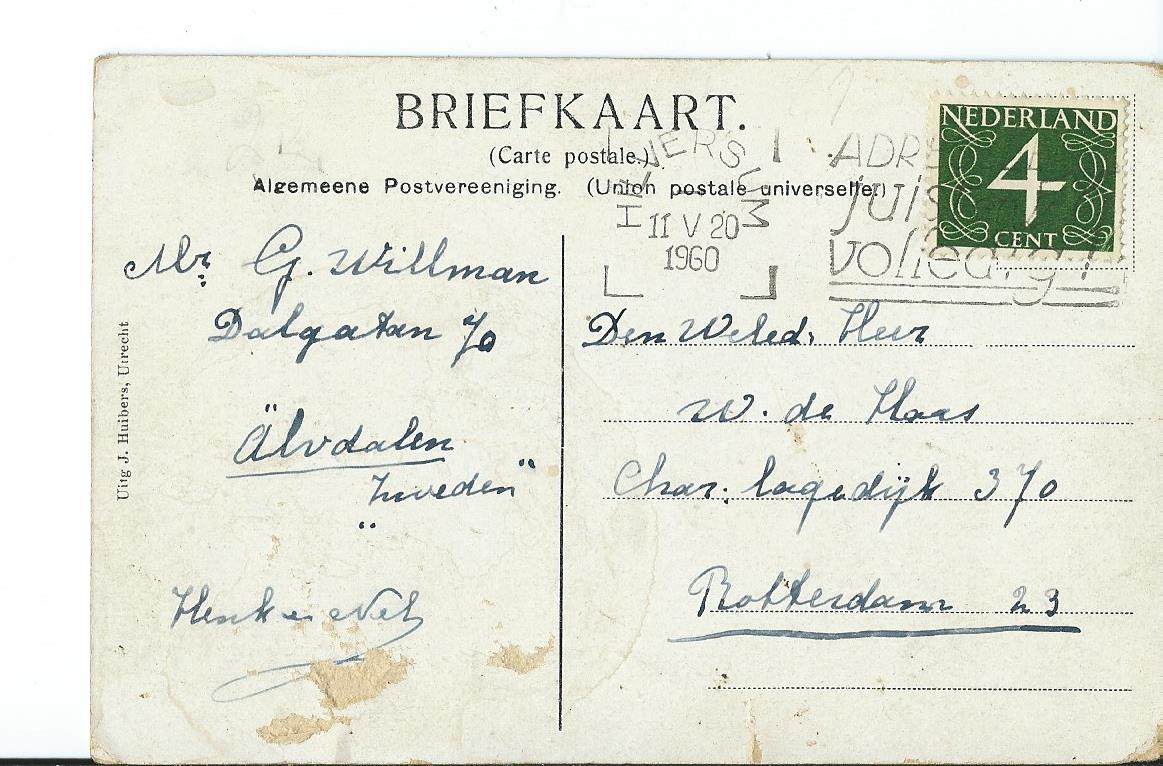 BRIEFKAART.
(Carte postale.)
Algemeene Postvereeniging. (Union postale universelle.)
NEDERLAND
4
CENT
HILVERSUM
11 V 20
1960
ADRES
juist
volledig!
Mr G. Willman
Dalgatan 70
Älvdalen
"Zweden"
Henk en Nel
Uitg J. Huibers, Utrecht
Den Weled. Heer
W. de Haas
Char. lagedijk 370
Rotterdam 23